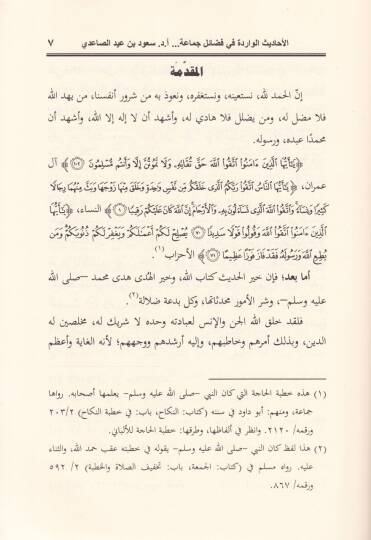 الأحاديث الواردة في فضائل جماعة... أ.د. سعود بن عيد الصاعدي ٧
المقدّمة
إنّ الحمد لله، نستعينه، ونستغفره، ونعوذ به من شرور أنفسنا، من يهد الله
فلا مضل له، ومن يضلل فلا هادي له، وأشهد أن لا إله إلا الله، وأشهد أن
محمدًا عبده، ورسوله.
﴿يَٰٓأَيُّهَا ٱلَّذِينَ ءَامَنُواْ ٱتَّقُواْ ٱللَّهَ حَقَّ تُقَاتِهِۦ وَلَا تَمُوتُنَّ إِلَّا وَأَنتُم مُّسْلِمُونَ ١٠٢﴾ آل
عمران، ﴿يَٰٓأَيُّهَا ٱلنَّاسُ ٱتَّقُواْ رَبَّكُمُ ٱلَّذِى خَلَقَكُم مِّن نَّفْسٍ وَٰحِدَةٍ وَخَلَقَ مِنْهَا زَوْجَهَا وَبَثَّ مِنْهُمَا رِجَالًا
كَثِيرًا وَنِسَآءً وَٱتَّقُواْ ٱللَّهَ ٱلَّذِى تَسَآءَلُونَ بِهِۦ وَٱلْأَرْحَامَ إِنَّ ٱللَّهَ كَانَ عَلَيْكُمْ رَقِيبًا ١﴾ النساء، ﴿يَٰٓأَيُّهَا
ٱلَّذِينَ ءَامَنُواْ ٱتَّقُواْ ٱللَّهَ وَقُولُواْ قَوْلًا سَدِيدًا ٧٠ يُصْلِحْ لَكُمْ أَعْمَٰلَكُمْ وَيَغْفِرْ لَكُمْ ذُنُوبَكُمْ وَمَن
يُطِعِ ٱللَّهَ وَرَسُولَهُۥ فَقَدْ فَازَ فَوْزًا عَظِيمًا ٧١﴾ الأحزاب(١).
أما بعد؛ فإن خير الحديث كتاب الله، وخير الهُدى هدى محمد –صلى الله
عليه وسلم–، وشر الأمور محدثاتها، وكل بدعة ضلالة(٢).
فلقد خلق الله الجن والإنس لعبادته وحده لا شريك له، مخلصين له
الدين، وبذلك أمرهم وخاطبهم، وإليه أرشدهم ووجههم؛ لأنه الغاية وأعظم
(١) هذه خطبة الحاجة التي كان النبي –صلى الله عليه وسلم– يعلمها أصحابه. رواها
جماعة، ومنهم: أبو داود في سننه (كتاب: النكاح، باب: في خطبة النكاح) ٢٠٣/٢
ورقمه/ ٢١٢٠. وانظر في ألفاظها، وطرقها: خطبة الحاجة للألباني.
(٢) هذا لفظ كان النبي –صلى الله عليه وسلم– يقوله في خطبته عقب حمد الله، والثناء
عليه. رواه مسلم في (كتاب: الجمعة، باب: تخفيف الصلاة والخطبة) ٢/ ٥٩٢
ورقمه/ ٨٦٧.